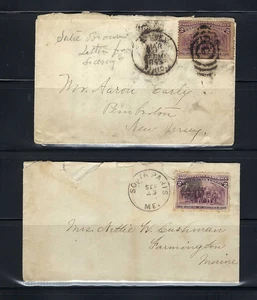 Letter from
Mr. Aaron Early.
Pemberton
New Jersey.
SOUTH PARIS
SEP
23
ME.
Mrs. Nettie B. Cushman
Farmington
Maine